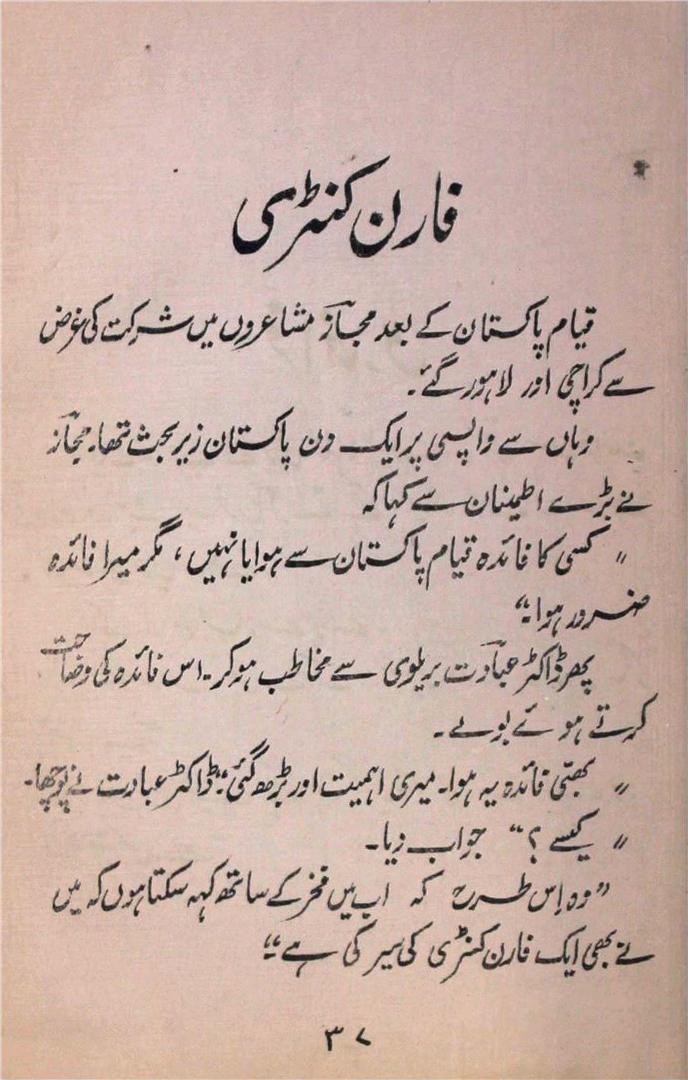 فارن کنٹری
قیام پاکستان کے بعد مجاز مشاعروں میں شرکت کی غرض
سے کراچی اور لاہور گئے۔
وہاں سے واپسی پر ایک دن پاکستان زیر بحث تھا۔ مجاز
نے بڑے اطمینان سے کہا کہ
"کسی کا فائدہ قیام پاکستان سے ہوا یا نہیں، مگر میرا فائدہ
ضرور ہوا۔"
پھر ڈاکٹر عبادت بریلوی سے مخاطب ہوکر۔ اس فائدہ کی وضاحت
کرتے ہوئے بولے۔
"بھئی فائدہ یہ ہوا۔ میری اہمیت اور بڑھ گئی" ڈاکٹر عبادت نے پوچھا۔
"کیسے؟" جواب دیا۔
"وہ اِس طرح کہ اب میں فخر کے ساتھ کہہ سکتا ہوں کہ میں
نے بھی ایک فارن کنٹری کی سیر کی ہے"
۳۷